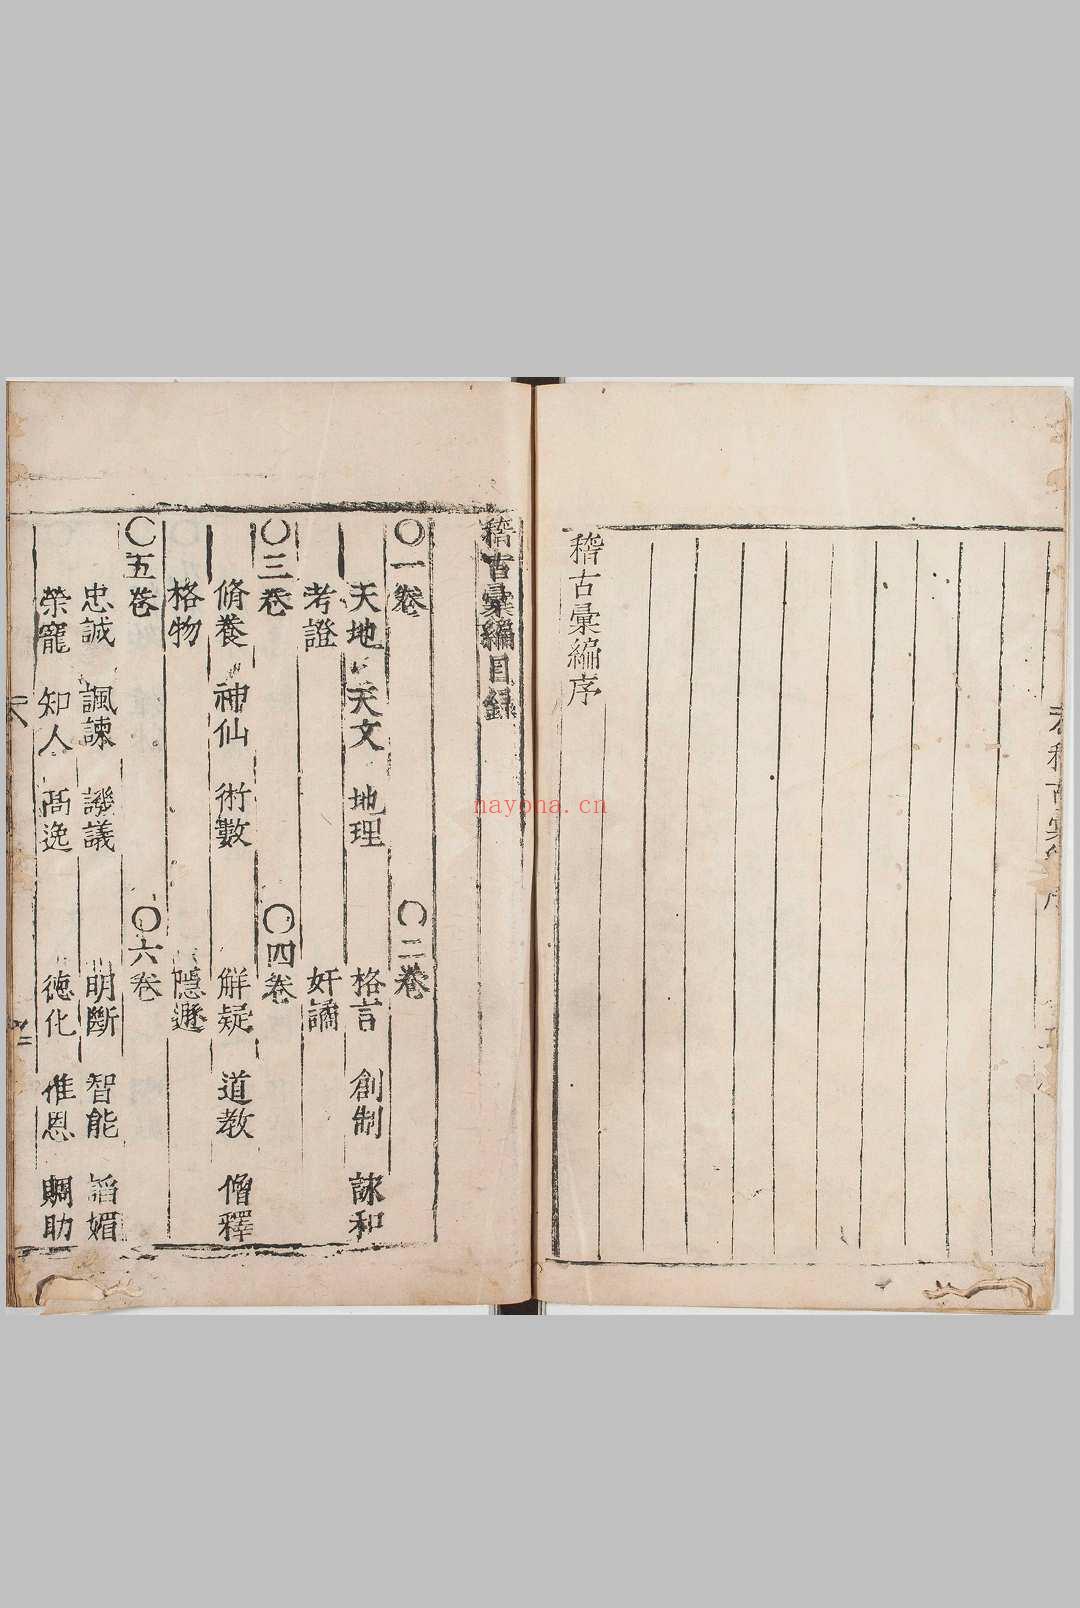 稽古彙編序
稽古彙編目録
〇一卷
〇二卷
天地 天文 地理
格言 創制 詠和
考證
奸譎
〇三卷
〇四卷
脩養 神仙 術數
解疑 道教 僧釋
格物
隱遯
〇五卷
〇六卷
忠誠 諷諫 譏議
明斷 智能 謟媚
榮寵 知人 髙逸
徳化 推恩 賙助
nayona.cn